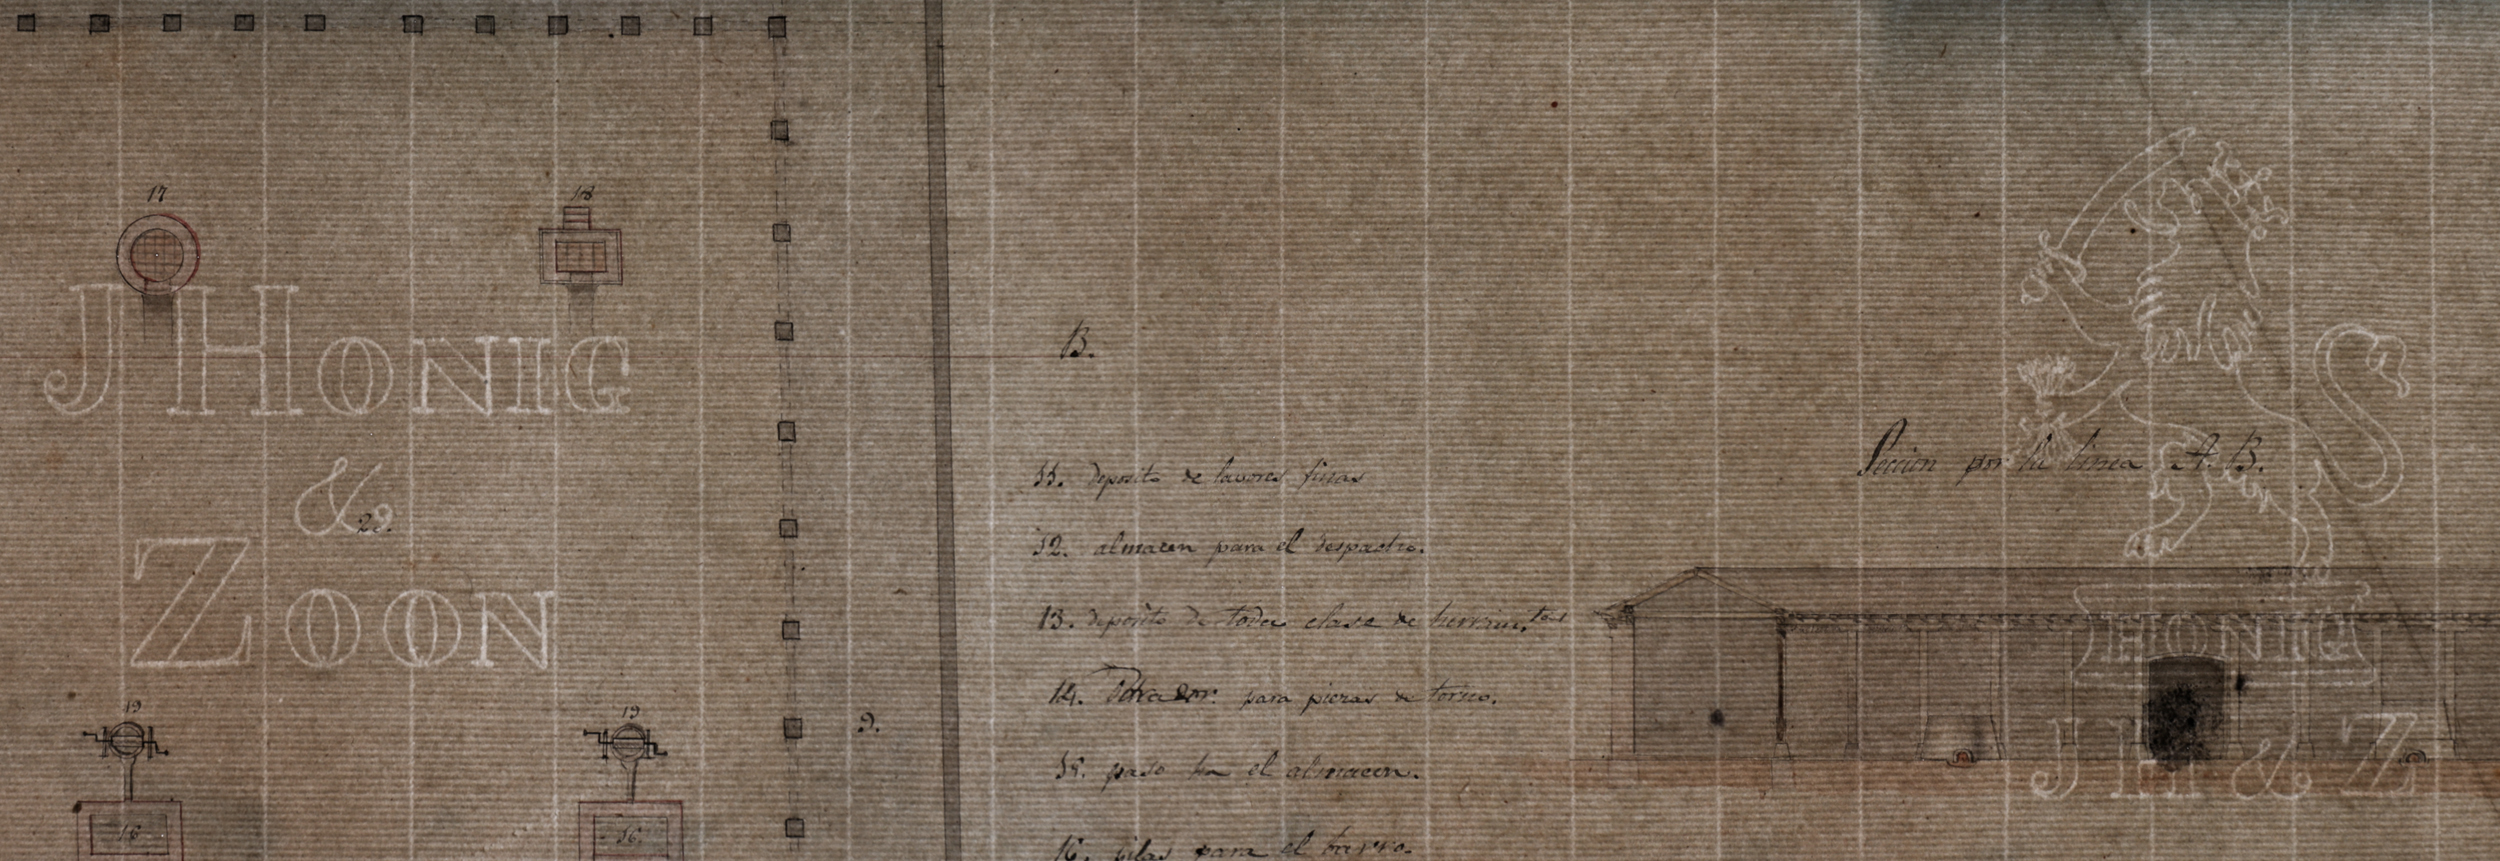 17
18
J HONIG
&
ZOON
2c.
19
19
16
16.
9.
B.
11. deposito de lavores finas
12. almacen para el despacho.
13. deposito de toda clase de herram.tas
14. para piezas de torno.
15. paso para el almacen.
16. pilas para el barro.
Seccion por la linea A. B.
HONIG
J H & Z